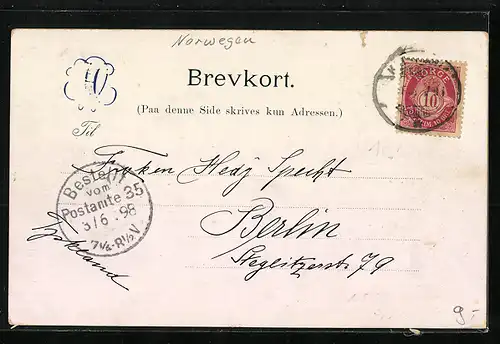 Norwegen
10
Brevkort.
(Paa denne Side skrives kun Adressen.)
NORGE
10
Til
Frøken Hedj Specht
Bestellt
vom
Postamte 35
3/6 98
7¼-8½ V
Berlin
Steglitzerstr 79
Tyskland
9.-